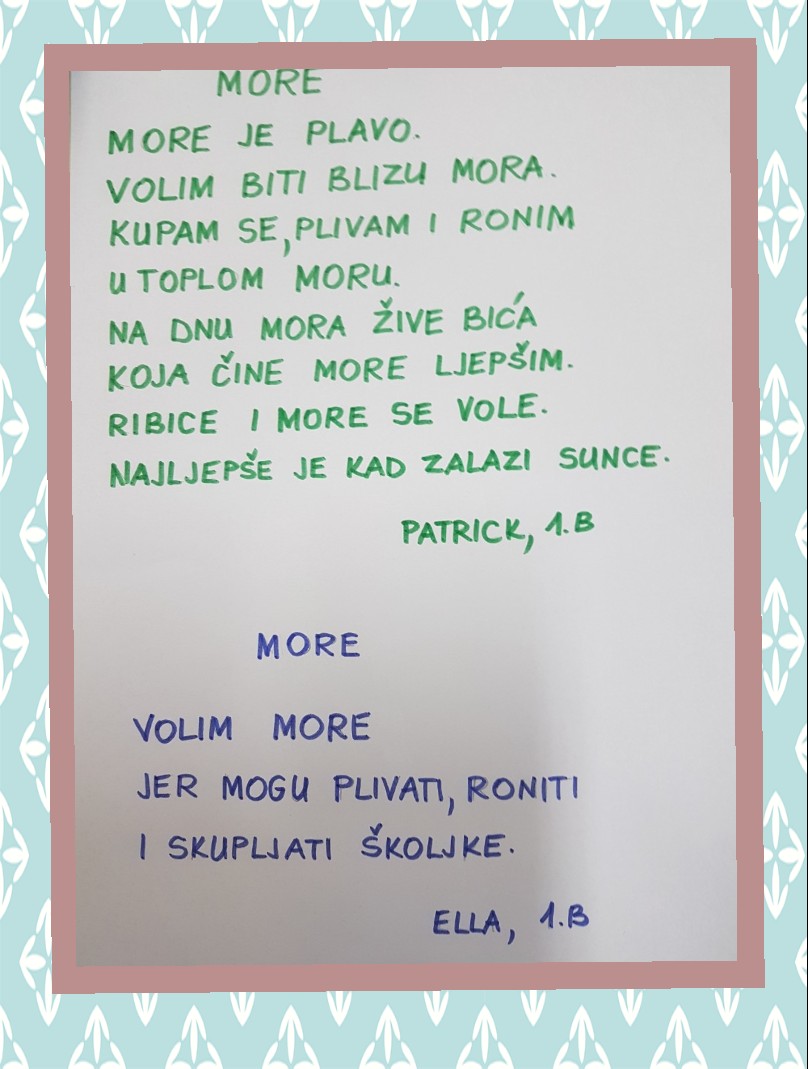 MORE
MORE JE PLAVO.
VOLIM BITI BLIZU MORA.
KUPAM SE, PLIVAM I RONIM
U TOPLOM MORU.
NA DNU MORA ŽIVE BIĆA
KOJA ČINE MORE LJEPŠIM.
RIBICE I MORE SE VOLE.
NAJLJEPŠE JE KAD ZALAZI SUNCE.
PATRICK, 1.B
MORE
VOLIM MORE
JER MOGU PLIVATI, RONITI
I SKUPLJATI ŠKOLJKE.
ELLA, 1.B